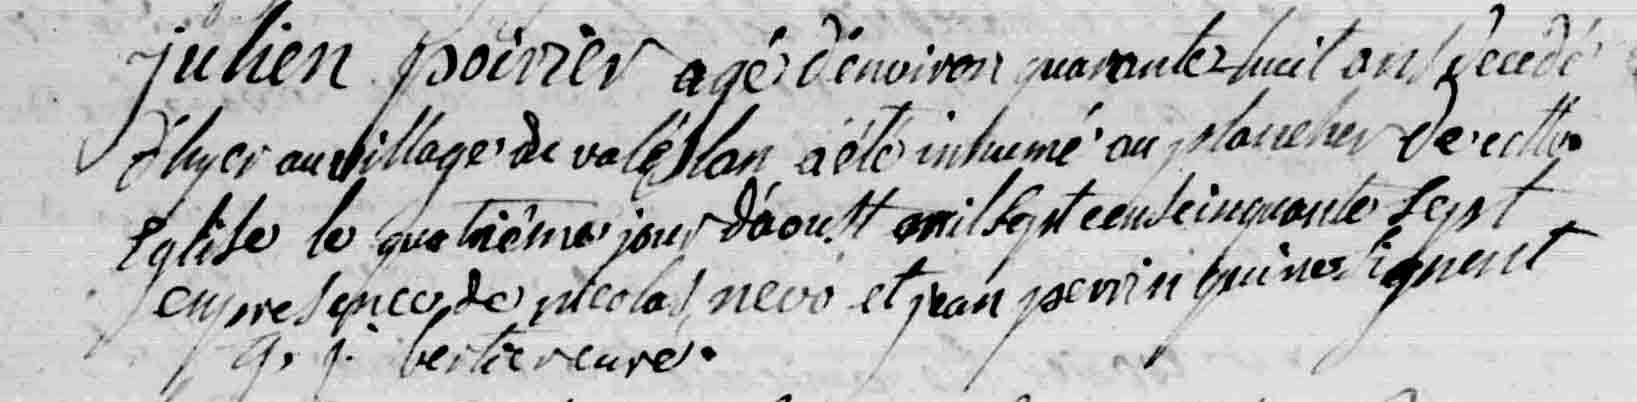 julien poirier agé d'environ quarante huit ans décédé
d'hyer au village du valéplan a été inhumé au plancher de cette
Eglise le quatriême jour d'aoust mil sept cens cinquante sept
en presence de nicolas nevo et jean perrin qui ne signent
g. j. bertier curé.